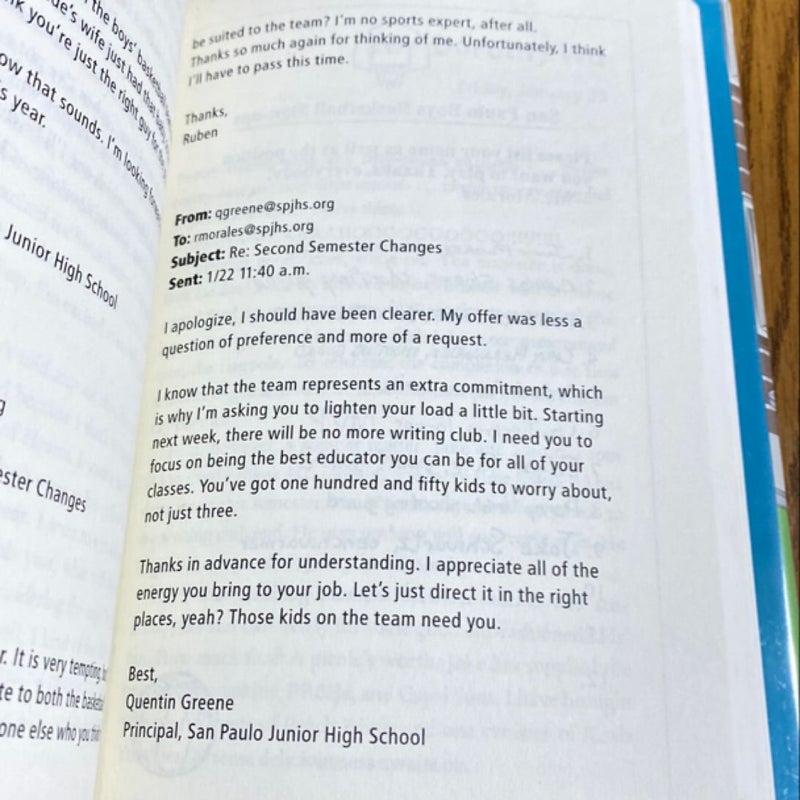 the boys' basketball
de's wife just had
k you're just the right guy for
ow that sounds. I'm looking
s year.
Junior High School
g
ester Changes
r. It is very tempting
te to both the
one else who you
be suited to the team? I'm no sports expert, after all.
Thanks so much again for thinking of me. Unfortunately, I think
I'll have to pass this time.
Thanks,
Ruben
From: qgreene@spjhs.org
To: rmorales@spjhs.org
Subject: Re: Second Semester Changes
Sent: 1/22 11:40 a.m.
I apologize, I should have been clearer. My offer was less a
question of preference and more of a request.
I know that the team represents an extra commitment, which
is why I'm asking you to lighten your load a little bit. Starting
next week, there will be no more writing club. I need you to
focus on being the best educator you can be for all of your
classes. You've got one hundred and fifty kids to worry about,
not just three.
Thanks in advance for understanding. I appreciate all of the
energy you bring to your job. Let's just direct it in the right
places, yeah? Those kids on the team need you.
Best,
Quentin Greene
Principal, San Paulo Junior High School